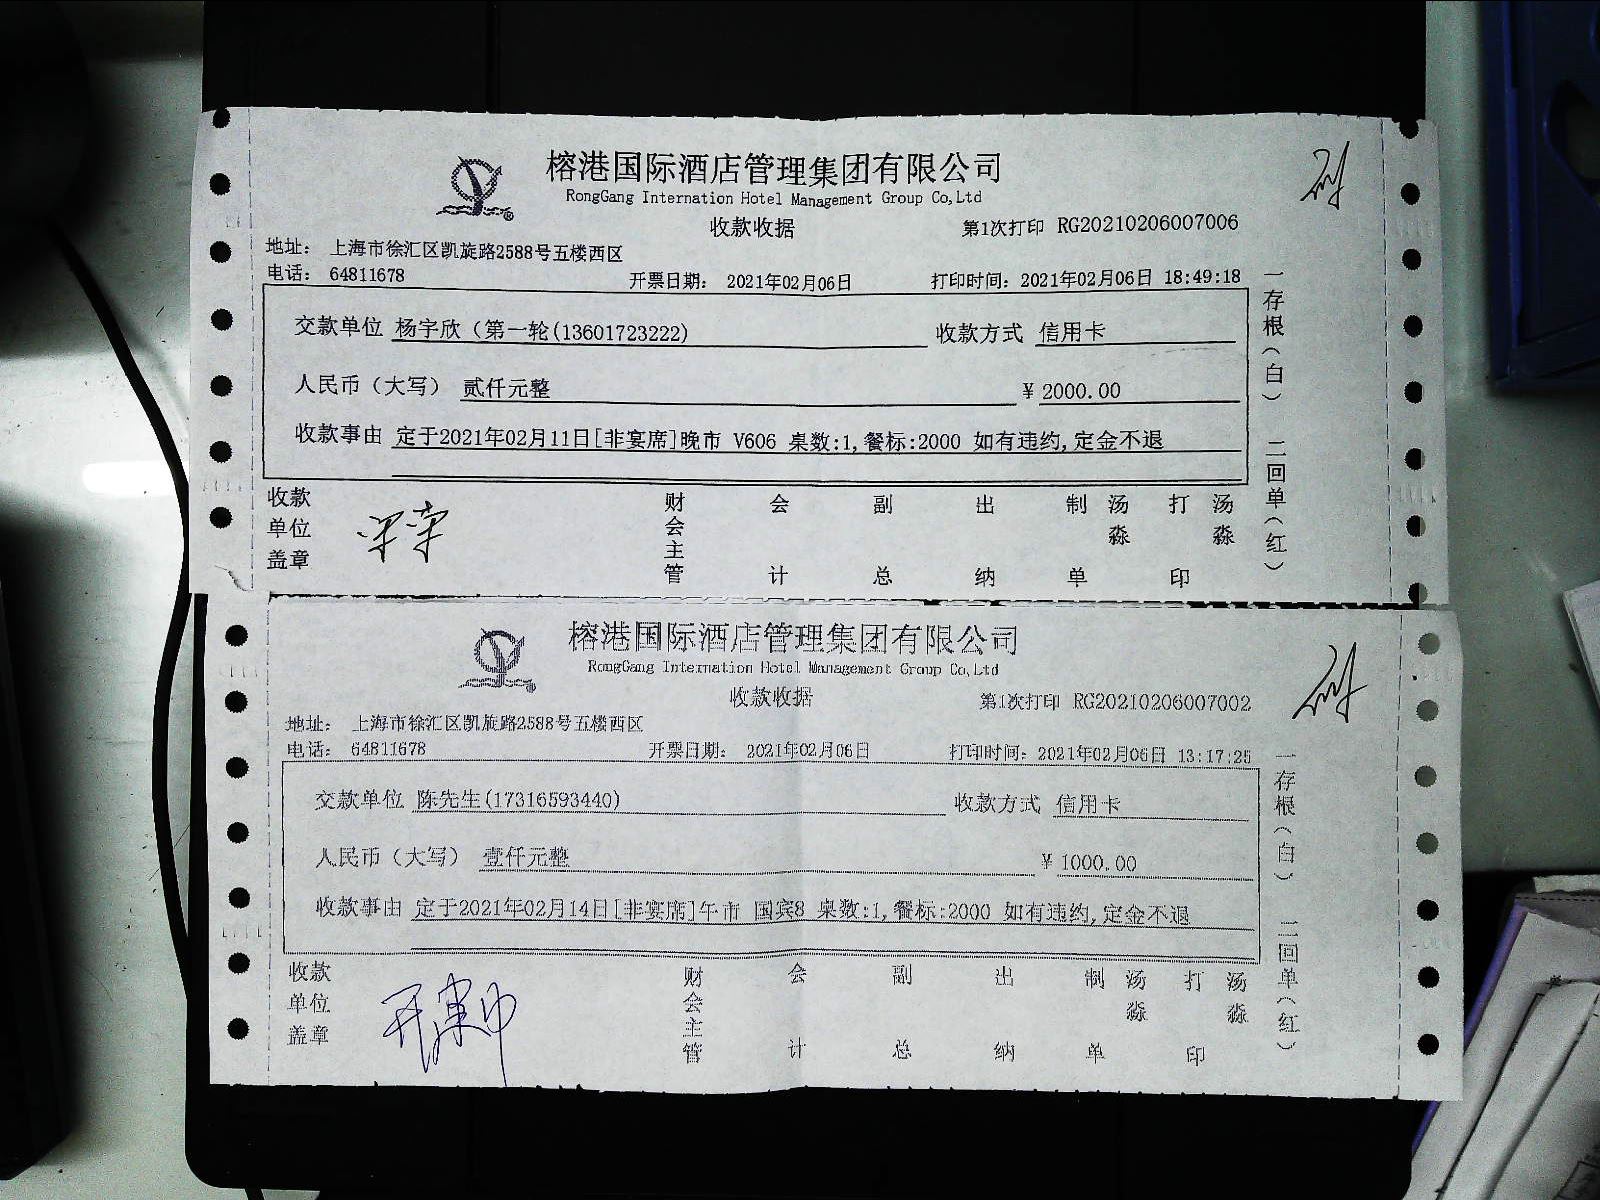 榕港国际酒店管理集团有限公司
RongGang Internation Hotel Management Group Co,Ltd
收款收据 第1次打印 RG20210206007006
地址： 上海市徐汇区凯旋路2588号五楼西区
电话： 64811678 开票日期： 2021年02月06日 打印时间：2021年02月06日 18:49:18
交款单位 杨宇欣（第一轮(13601723222) 收款方式 信用卡
人民币（大写） 贰仟元整 ¥ 2000.00
收款事由 定于2021年02月11日[非宴席]晚市 V606 桌数:1,餐标:2000 如有违约,定金不退
收款单位盖章 财会主管 会计 副总 出纳 制单 汤淼 打印 汤淼
一存根（白） 二回单（红）
榕港国际酒店管理集团有限公司
RongGang Internation Hotel Management Group Co,Ltd
收款收据 第1次打印 RG20210206007002
地址： 上海市徐汇区凯旋路2588号五楼西区
电话： 64811678 开票日期： 2021年02月06日 打印时间：2021年02月06日 13:17:25
交款单位 陈先生(17316593440) 收款方式 信用卡
人民币（大写） 壹仟元整 ¥ 1000.00
收款事由 定于2021年02月14日[非宴席]午市 国宾8 桌数:1,餐标:2000 如有违约,定金不退
收款单位盖章 财会主管 会计 副总 出纳 制单 汤淼 打印 汤淼
一存根（白） 二回单（红）